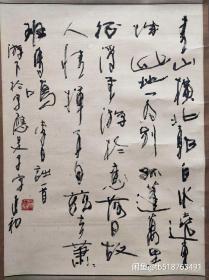 青山横北郭白水遶東
城此地一为别孤蓬万里
征浮云游子意落日故
人情挥手自兹去萧
班马鸣 李白诗一首
闲鱼@tb518763491